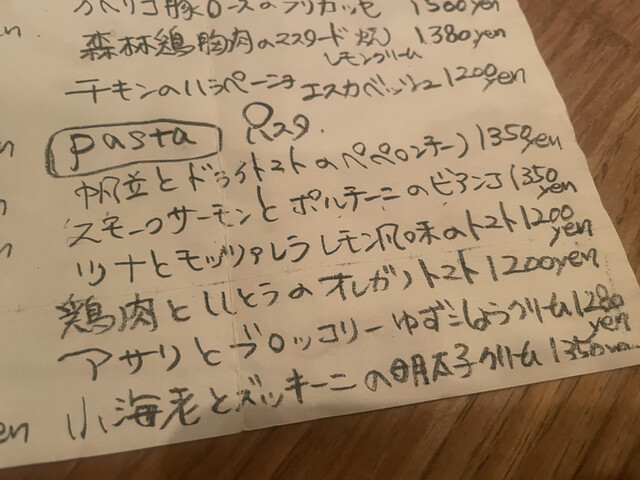 豚ロースのフリカッセ 1500yen
森林鶏胸肉のマスタード焼 1380yen
レモンクリーム
チキンのハラペーニョ エスカベッシュ 1200yen
pasta パスタ.
帆立とドライトマトのペペロンチーノ 1350yen
スモークサーモンとポルチーニのビアンコ 1350yen
ツナとモッツァレラ レモン風味のトマト 1200yen
鶏肉とししとうのオレガノトマト 1200yen
アサリとブロッコリーゆずこしょうクリーム 1280yen
小海老とズッキーニの明太子クリーム 1350